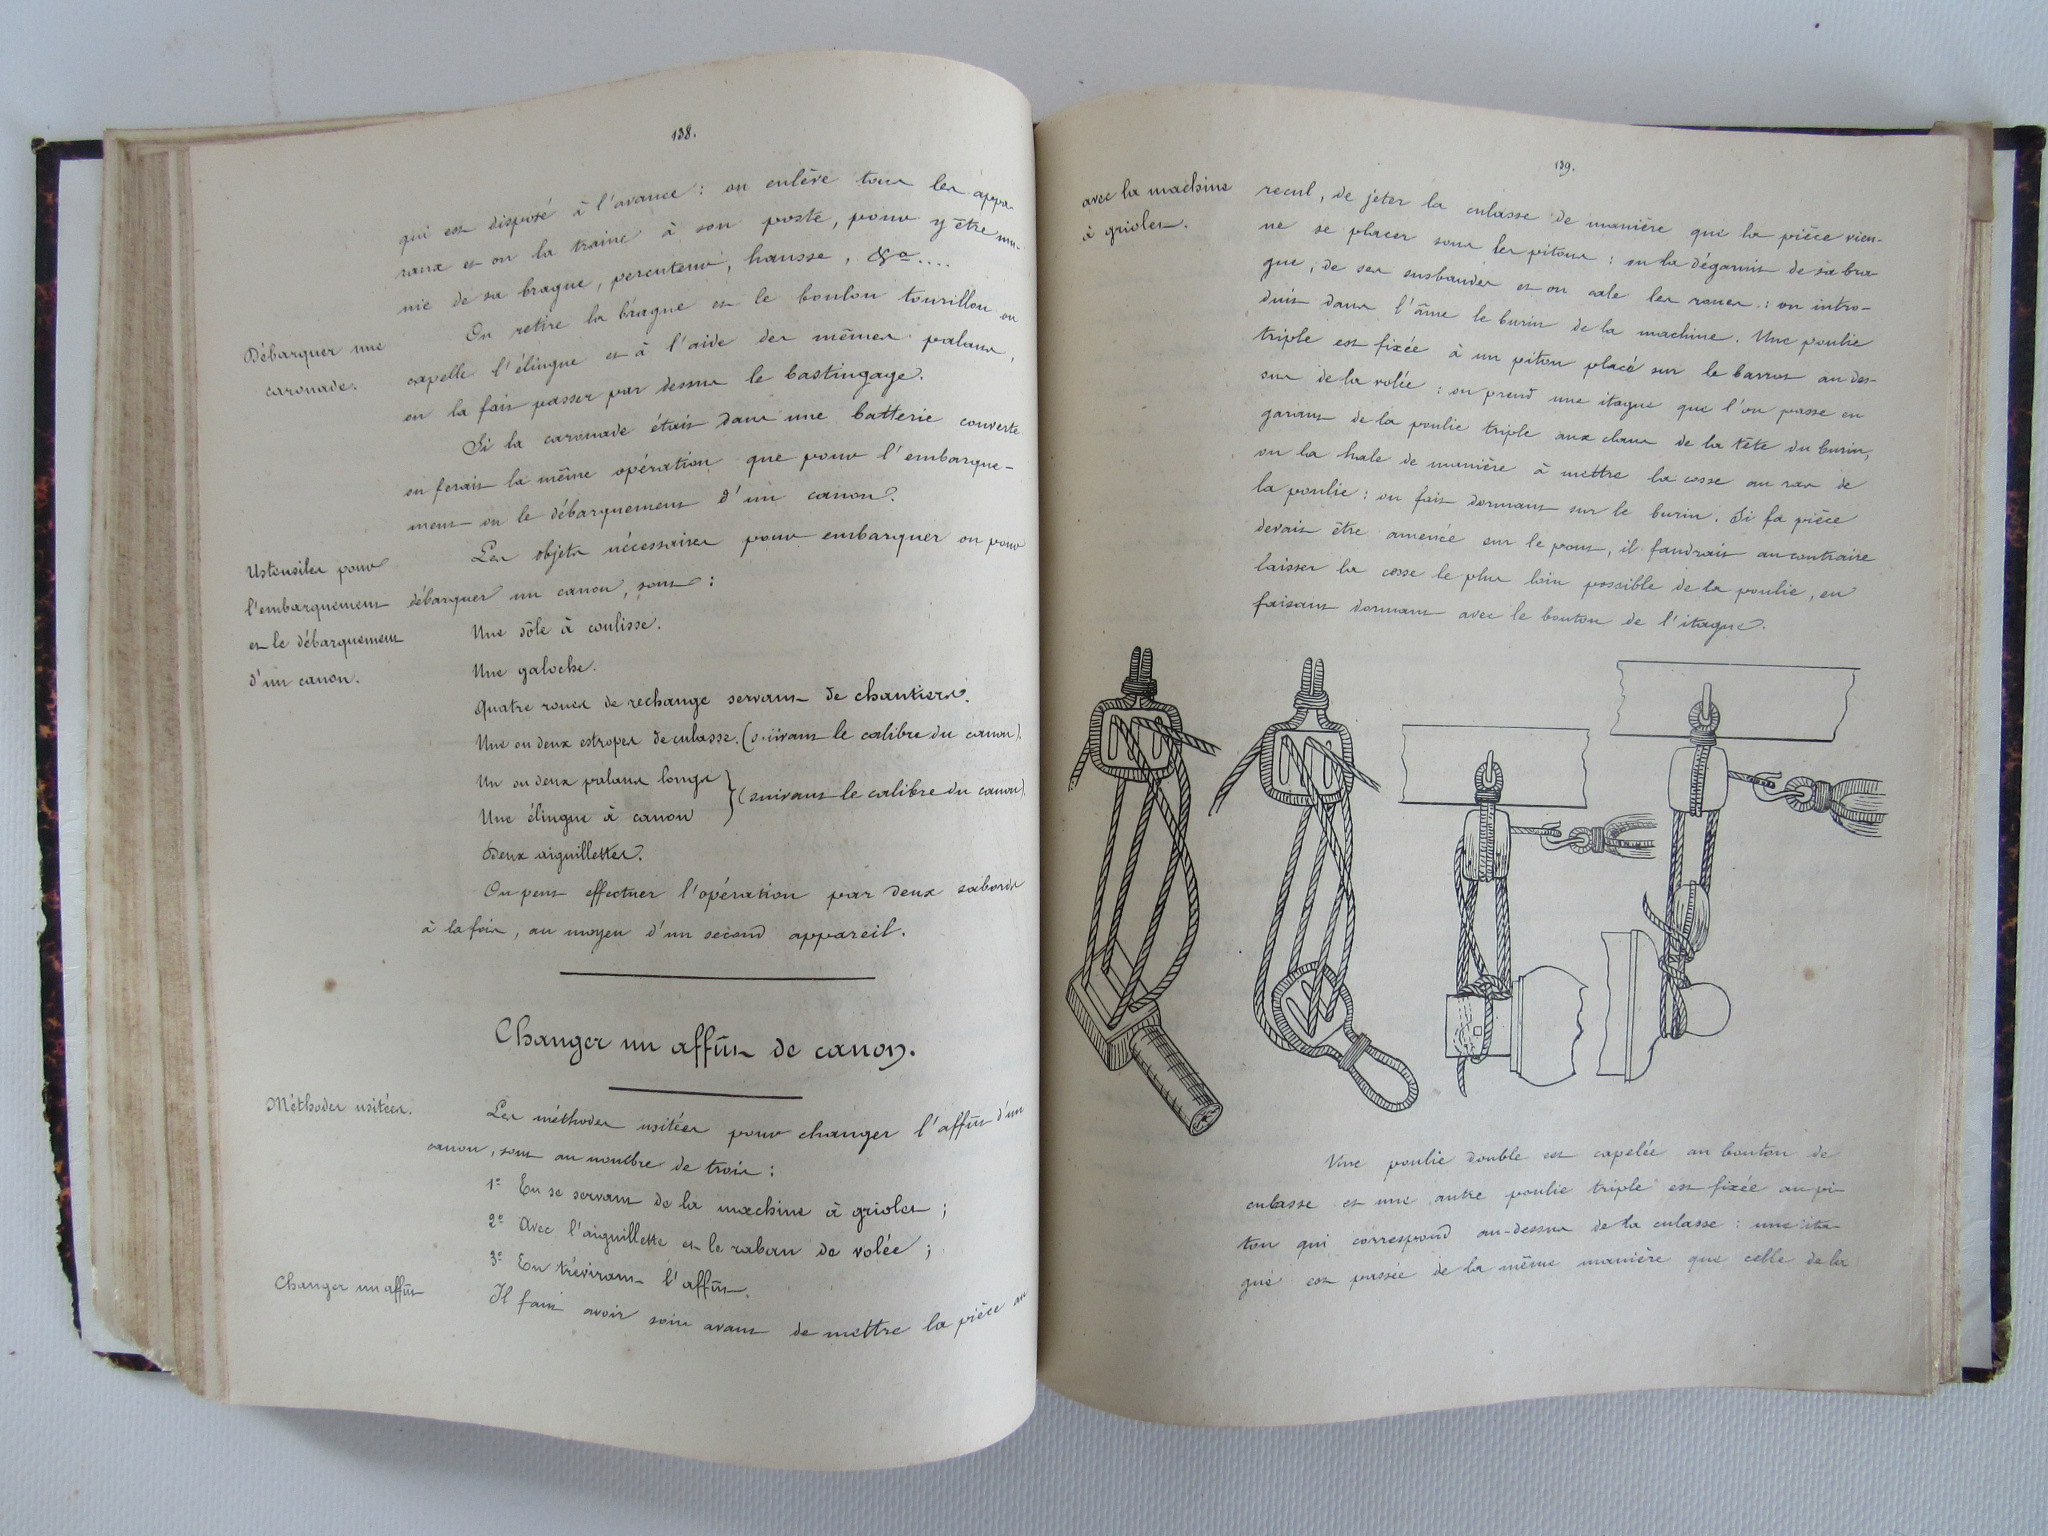 138.
qui est disposé à l'avance : on enlève tous les appa-
raux et on la traine à son poste, pour y être mu-
nie de sa brague, percuteur, hausse, &a....
Débarquer une
caronade.
On retire la brague et le boulon tourillon on
capelle l'élingue et à l'aide des mêmes palans,
on la fait passer par dessus le bastingage.
Si la caronade était dans une batterie couverte
on ferait la même opération que pour l'embarque-
ment ou le débarquement d'un canon.
Ustensiles pour
l'embarquement
et le débarquement
d'un canon.
Les objets nécessaires pour embarquer ou pour
débarquer un canon, sont :
Une sôle à coulisse.
Une galoche.
Quatre roues de rechange servant de chantiers.
Une ou deux estropes de culasse. (suivant le calibre du canon).
Un ou deux palans longs
Une élingue à canon } (suivant le calibre du canon).
Deux aiguillettes.
On peut effectuer l'opération par deux sabords
à la fois, au moyen d'un second appareil.
Changer un affût de canon.
Méthodes usitées.
Les méthodes usitées pour changer l'affût d'un
canon, sont au nombre de trois :
1º En se servant de la machine à grioles ;
2º Avec l'aiguillette et le raban de volée ;
3º En trévirant l'affût.
Changer un affût
Il faut avoir soin avant de mettre la pièce au
139.
avec la machine
à grioles.
recul, de jeter la culasse de manière que la pièce vien-
ne se placer sous les pitons : on la dégarnit de sa bra-
gue, de ses susbandes et on cale les roues : on intro-
duit dans l'âme le burin de la machine. Une poulie
triple est fixée à un piton placé sur le barrot au des-
sus de la volée : on prend une itague que l'on passe en
garant de la poulie triple aux clans de la tête du burin,
on la hale de manière à mettre la cosse au ras de
la poulie : on fait dormant sur le burin. Si la pièce
devait être amenée sur le pont, il faudrait au contraire
laisser la cosse le plus loin possible de la poulie, en
faisant dormant avec le bouton de l'itague.
Une poulie double est capelée au bouton de
culasse et une autre poulie triple est fixée au pi-
ton qui correspond au-dessus de la culasse : une ita-
gue est passée de la même manière que celle de la